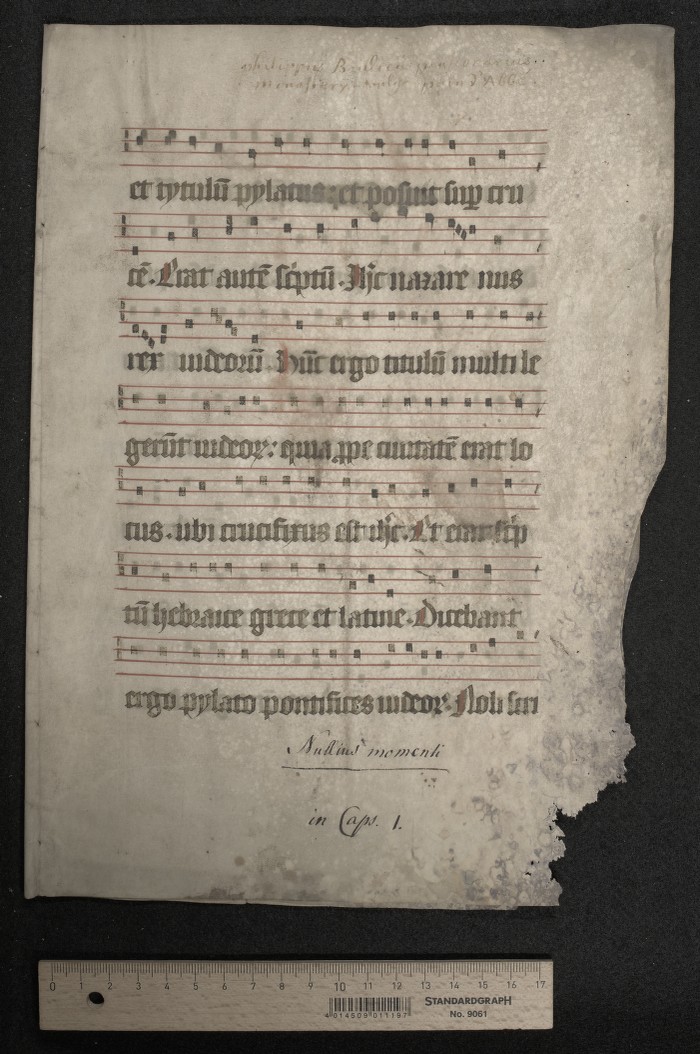 et tytulū pylatus: et posuit suꝑ cru
cē. Erat autē sc̄ptū. Ih̄c nazare nus
rex iudeorū. Hūc ergo titulū multi le
gerūt iudeoꝝ: quia ꝓpe ciuitatē erat lo
cus. ubi crucifixus est ih̄c. Et erat sc̄p
tū hebraice grece et latine. Dicebant
ergo pylato pontifices iudeoꝝ. Noli scri
Nullius momenti
in Caps. 1.
0 1 2 3 4 5 6 7 8 9 10 11 12 13 14 15 16 17
4 014509 011197
STANDARDGRAPH
No. 9061